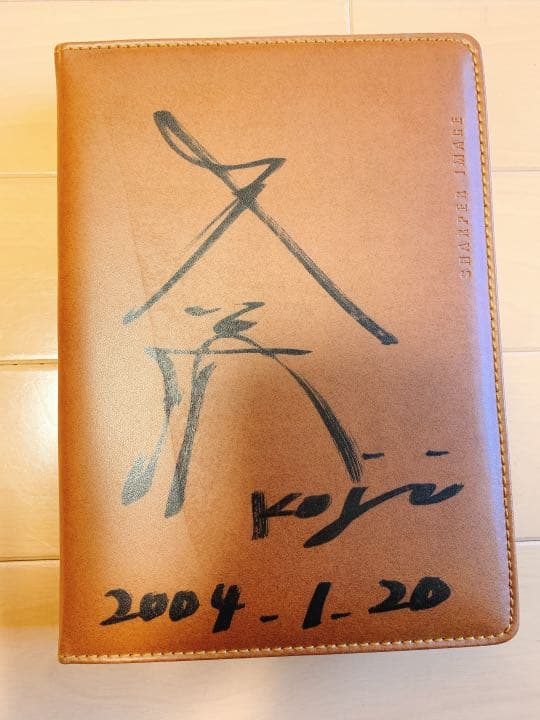 SHARPER IMAGE
Koji
2004-1-20